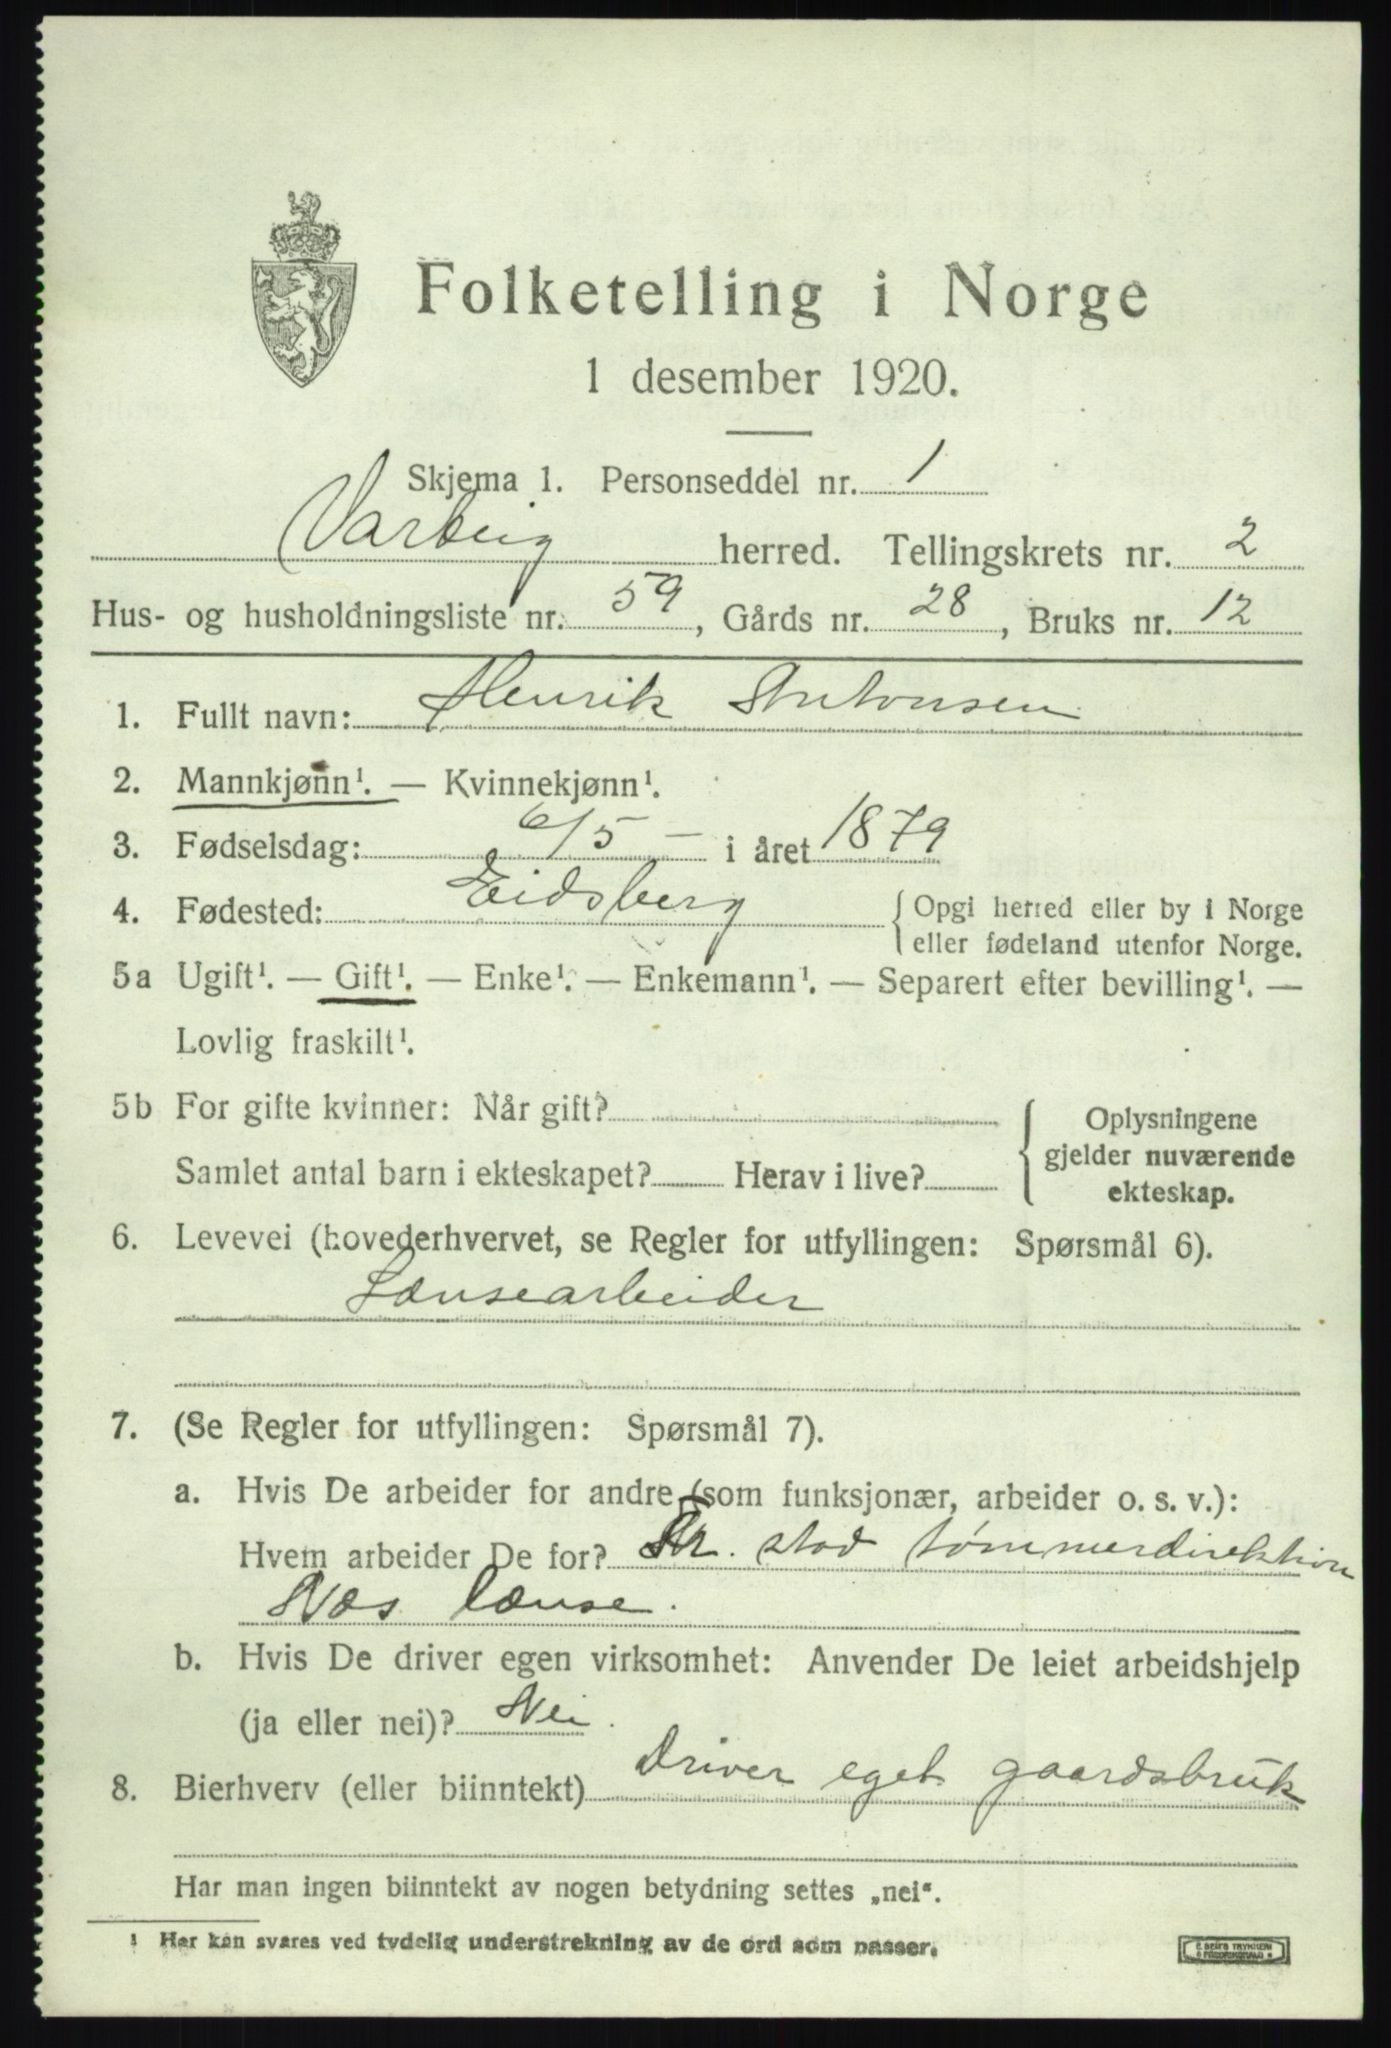 Folketelling i Norge
1 desember 1920.
Skjema 1. Personseddel nr. 1
Varteig herred. Tellingskrets nr. 2
Hus- og husholdningsliste nr. 59, Gårds nr. 28, Bruks nr. 12
1. Fullt navn: Henrik Antonsen
2. Mannkjønn¹. — Kvinnekjønn¹.
3. Fødselsdag: 6/5 — i året 1879
4. Fødested: Eidsberg { Opgi herred eller by i Norge
eller fødeland utenfor Norge.
5a Ugift¹. — Gift¹. — Enke¹. — Enkemann¹. — Separert efter bevilling¹. —
Lovlig fraskilt¹.
5b For gifte kvinner: Når gift?
Samlet antal barn i ekteskapet? Herav i live?
{ Oplysningene
gjelder nuværende
ekteskap.
6. Levevei (hovederhvervet, se Regler for utfyllingen: Spørsmål 6).
Lænsearbeider
7. (Se Regler for utfyllingen: Spørsmål 7).
a. Hvis De arbeider for andre (som funksjonær, arbeider o. s. v.):
Hvem arbeider De for? Fr. stad tømmerdirektion
Næs lænse.
b. Hvis De driver egen virksomhet: Anvender De leiet arbeidshjelp
(ja eller nei)? Nei.
8. Bierhverv (eller biinntekt) Driver eget gaardsbruk
Har man ingen biinntekt av nogen betydning settes „nei“.
¹ Her kan svares ved tydelig understrekning av de ord som passer.